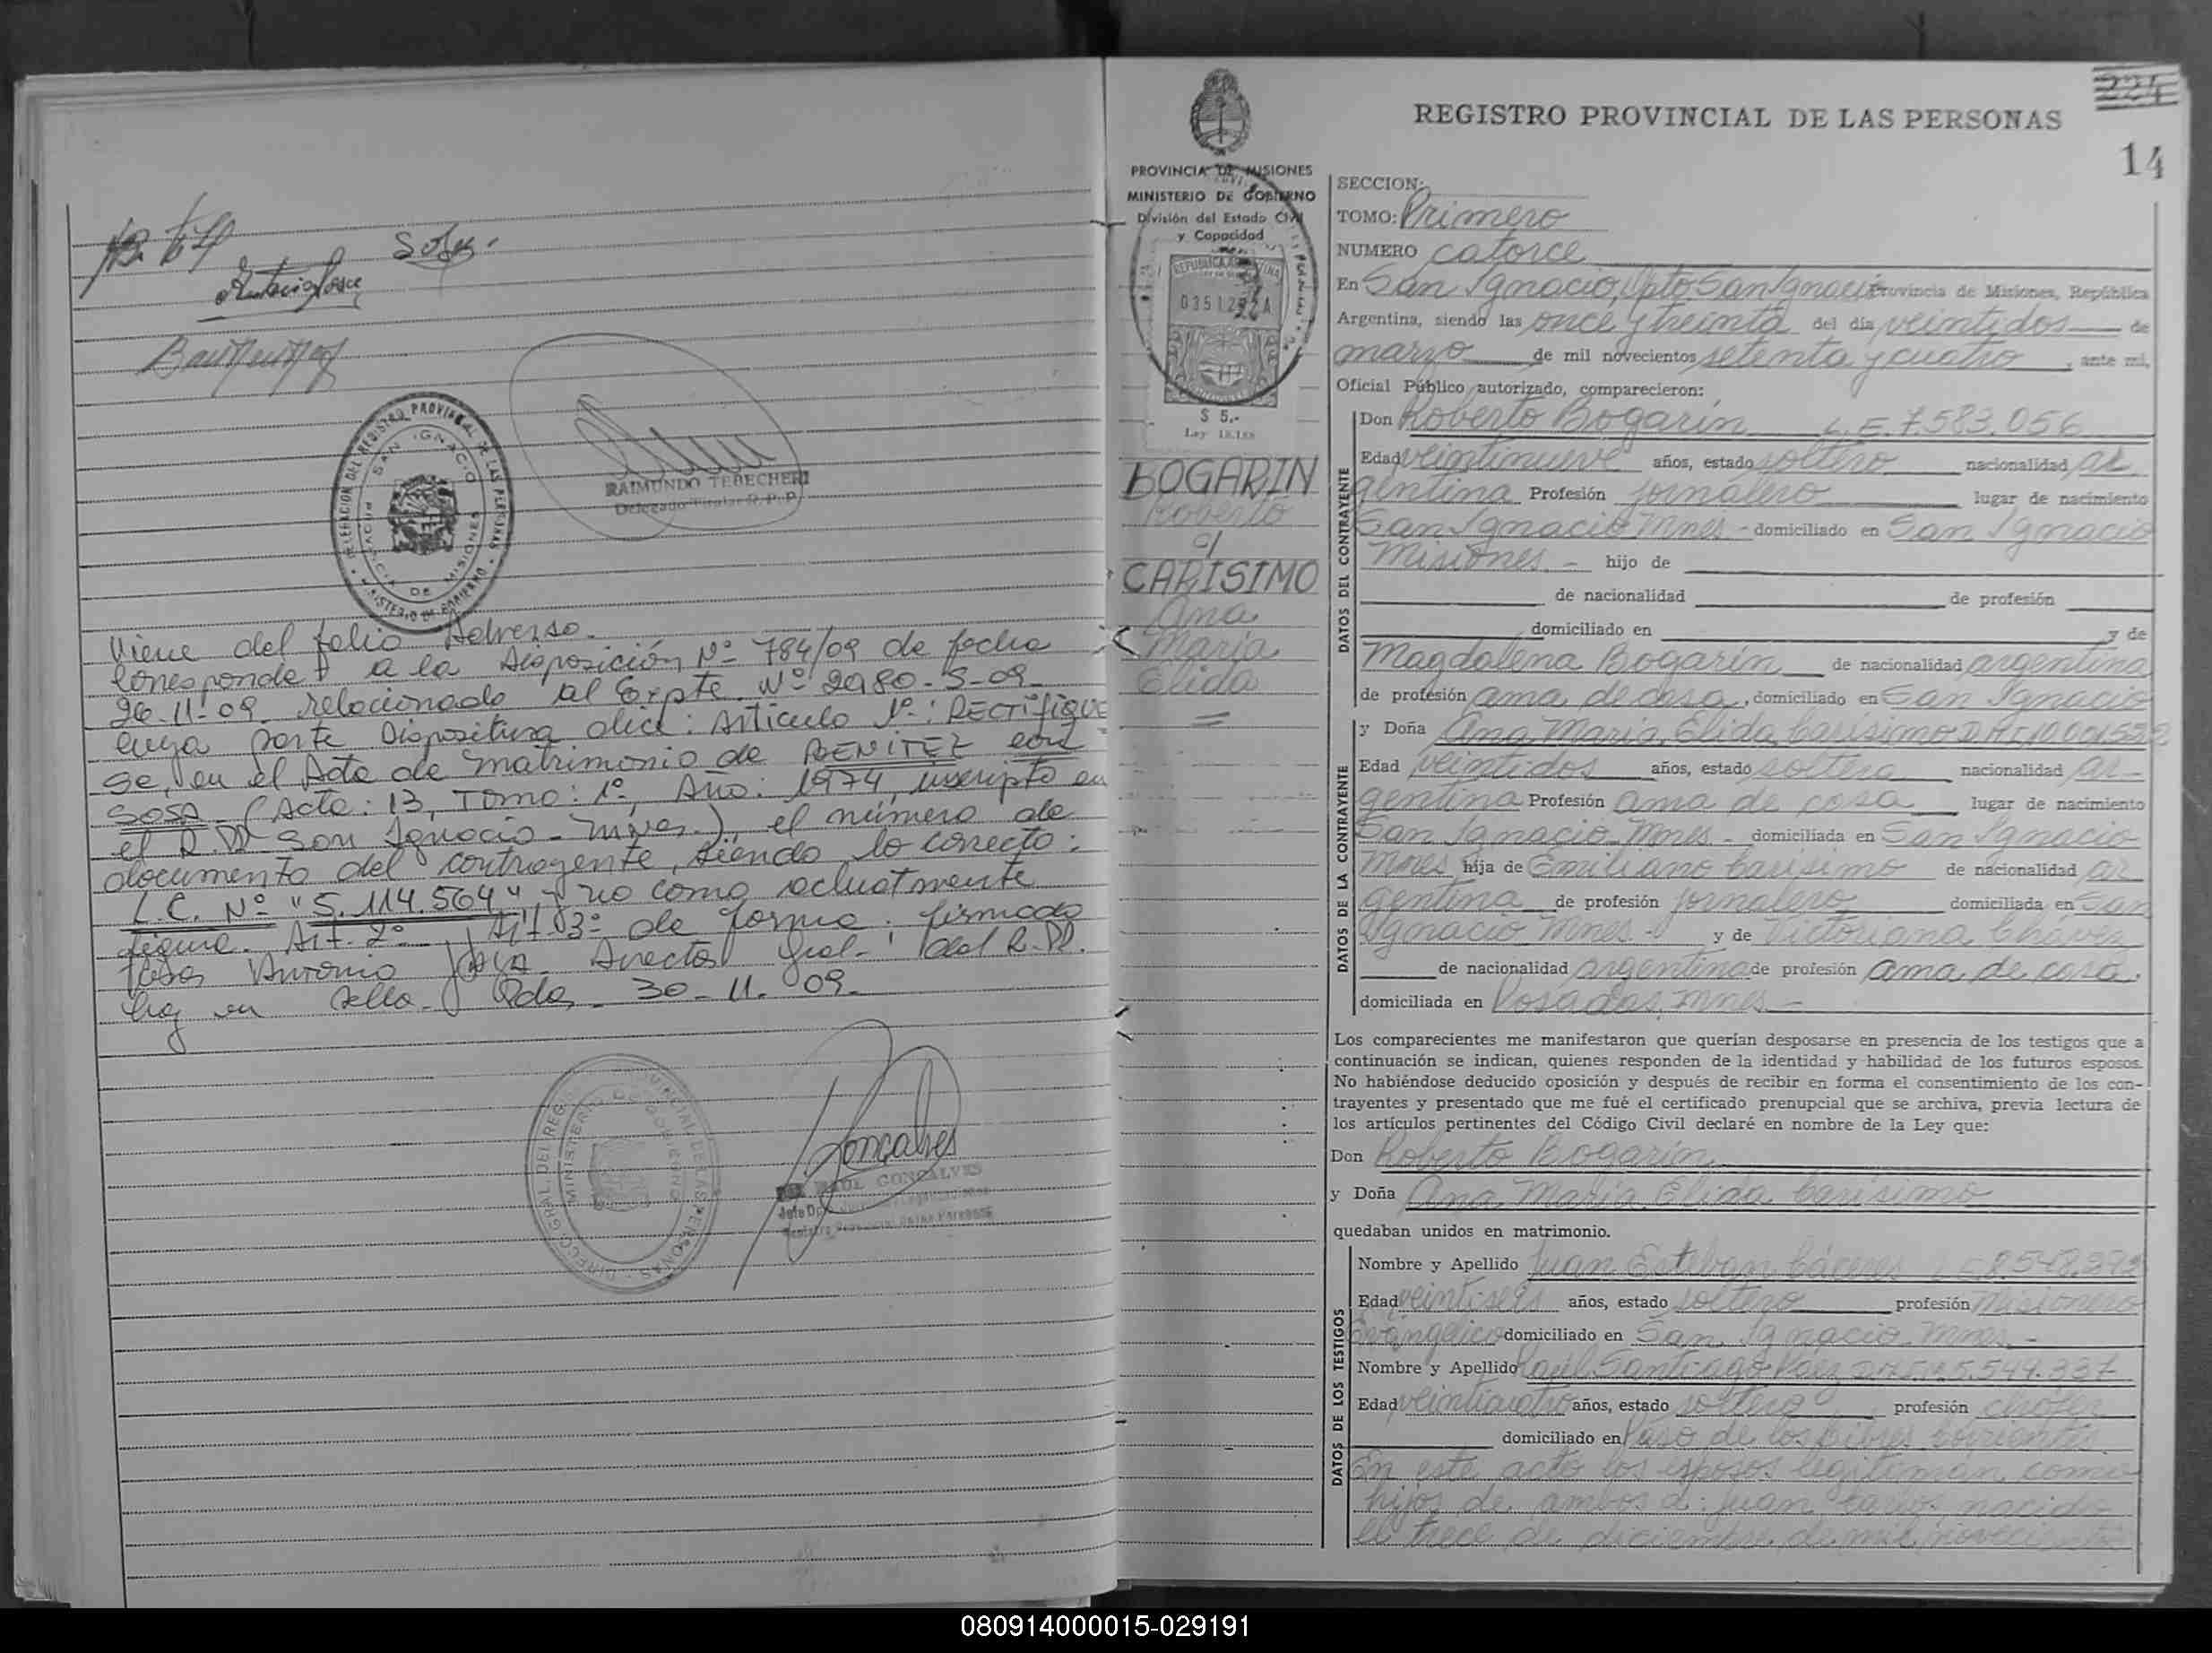 Sosa.
REGISTRO PROVINCIAL DE LAS PERSONAS
SAN IGNACIO
DE MISIONES
RAIMUNDO TEBECHERI
Delegado Titular R.P.P.
Viene del folio Adverso.
Corresponde a la Disposición Nº 784/09 de fecha
26-11-09 relacionado al Expte. Nº 2980-S-09-
cuya parte Dispositiva dice: Artículo 1º: RECTIFIQUE
se, en el Acta de Matrimonio de BENITEZ con
SOSA (Acta: 13, Tomo: 1º, Año: 1974, inscripto en
el R.PP. San Ignacio-Mnes.), el número de
documento del contrayente, siendo lo correcto:
L.E. Nº "5.114.564" y no como actualmente
figura. Art. 2º Art. 3º de forma. firmado
Antonio Director Gral. del R.PP.
hay un sello. Pdas. 30-11-09-
Goncalves
RAUL GONCALVES
224
REGISTRO PROVINCIAL DE LAS PERSONAS
14
PROVINCIA DE MISIONES
MINISTERIO DE GOBIERNO
División del Estado Civil
y Capacidad
REPUBLICA ARGENTINA
$ 5.-
Ley 18.188
BOGARIN
Roberto
c/
CARISIMO
Ana
Maria
Elida
SECCION:
TOMO: Primero
NUMERO catorce
En San Ignacio, Dpto San Ignacio Provincia de Misiones, República
Argentina, siendo las once y treinta del día veintidos de
marzo de mil novecientos setenta y cuatro, ante mi,
Oficial Público autorizado, comparecieron:
DATOS DEL CONTRAYENTE
Don Roberto Bogarin L.E. 7.583.056
Edad veintinueve años, estado soltero nacionalidad ar
gentina Profesión jornalero lugar de nacimiento
San Ignacio Mnes - domiciliado en San Ignacio
Misiones. - hijo de
de nacionalidad de profesión
domiciliado en y de
Magdalena Bogarin de nacionalidad argentina
de profesión ama de casa, domiciliado en San Ignacio
DATOS DE LA CONTRAYENTE
y Doña Ana Maria Elida Carisimo
Edad veintidos años, estado soltera nacionalidad ar-
gentina Profesión ama de casa lugar de nacimiento
San Ignacio Mnes. - domiciliada en San Ignacio
Mnes hija de Emiliano Carisimo de nacionalidad ar
gentina de profesión jornalero domiciliada en San
Ignacio Mnes - y de Victoriana Chávez
de nacionalidad argentina de profesión ama de casa.
domiciliada en Posadas, Mnes -
Los comparecientes me manifestaron que querían desposarse en presencia de los testigos que a
continuación se indican, quienes responden de la identidad y habilidad de los futuros esposos.
No habiéndose deducido oposición y después de recibir en forma el consentimiento de los con-
trayentes y presentado que me fué el certificado prenupcial que se archiva, previa lectura de
los artículos pertinentes del Código Civil declaré en nombre de la Ley que:
Don Roberto Bogarin
y Doña Ana Maria Elida Carisimo
quedaban unidos en matrimonio.
DATOS DE LOS TESTIGOS
Nombre y Apellido Juan Esteban Cáceres
Edad veintiseis años, estado soltero profesión Misionero
Evangélico domiciliado en San Ignacio Mnes -
Nombre y Apellido Raúl Santiago Paez 5.549.337
Edad veinticuatro años, estado soltero profesión chofer
domiciliado en Paso de los Libres Corrientes
En este acto los esposos legitiman como
hijo de ambos a: Juan Carlos nacido
el trece de diciembre de mil novecientos
080914000015-029191